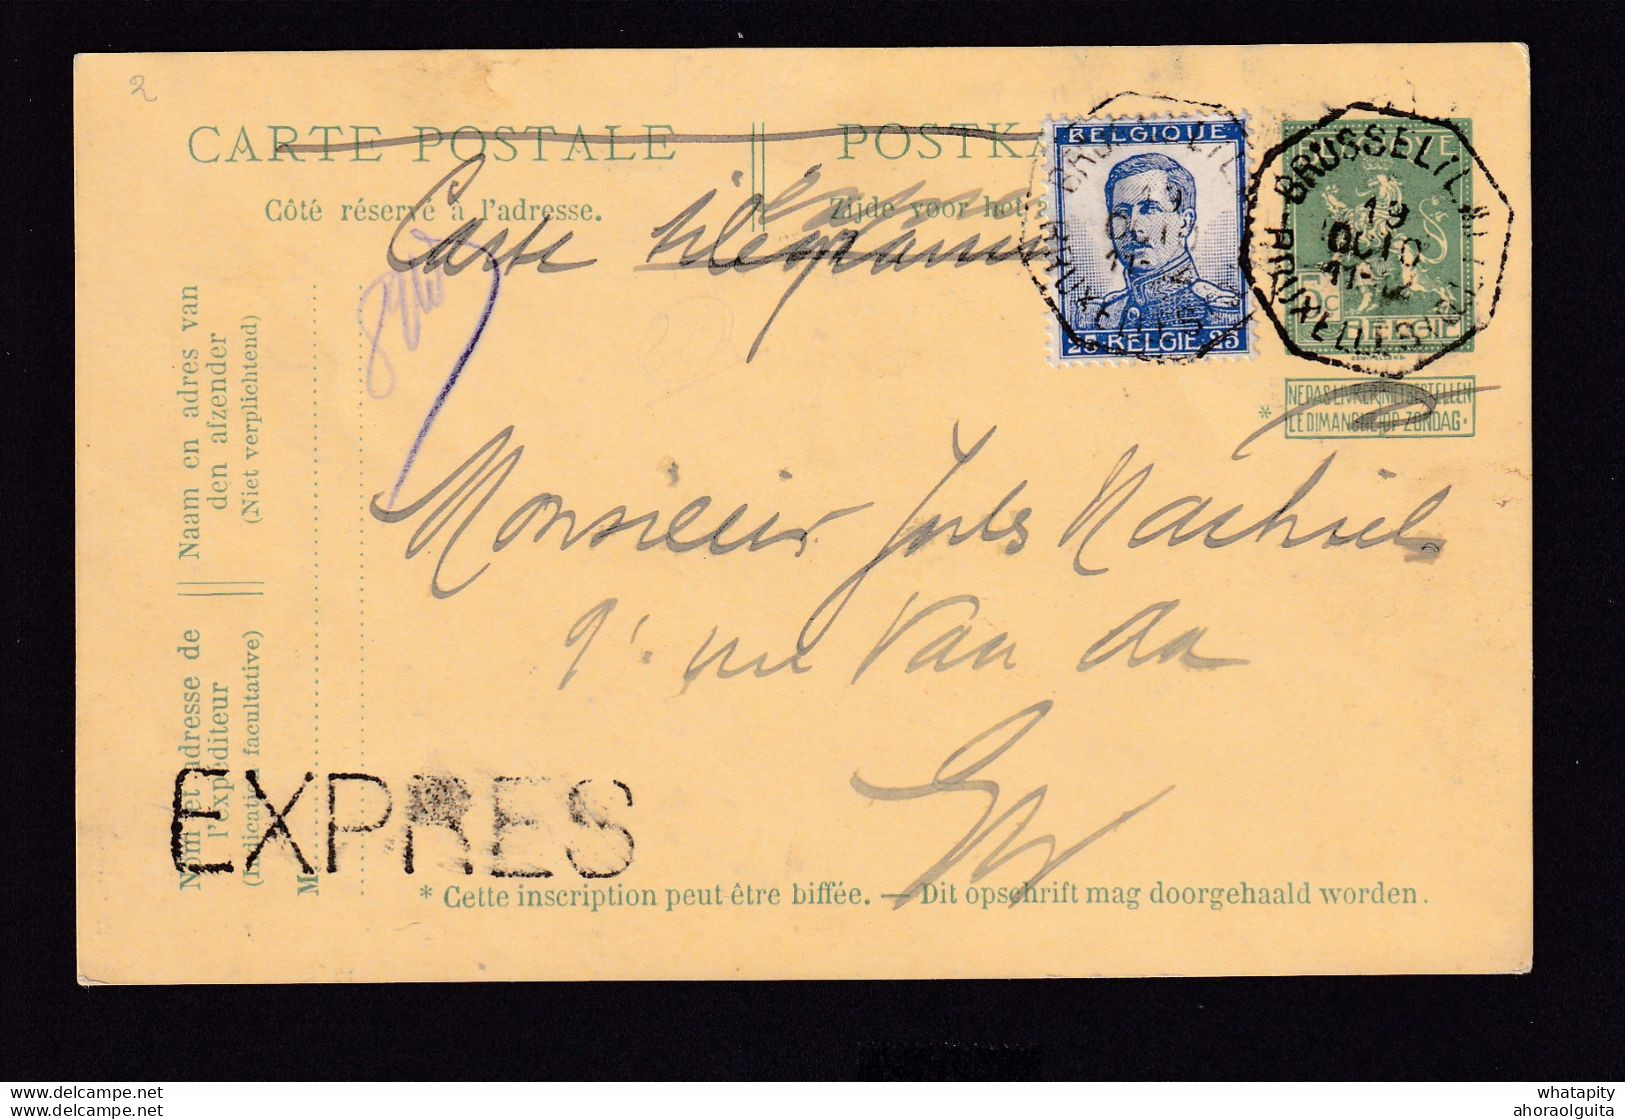 2
CARTE POSTALE
Côté réservé à l'adresse.
POSTKA
Zijde voor het
Carte télégramme
BELGIQUE
25 BELGIE 25
BRUSSEL
19
OCTO
11-
BRUXELLES
5c
BELGIE
BRUSSEL
19
OCTO
11-
BRUXELLES
NE PAS LIVRER NIET BESTELLEN
* LE DIMANCHE OP ZONDAG.
Naam en adres van
den afzender
(Niet verplichtend)
Nom et adresse de
l'expéditeur
(Indication facultative)
M
Monsieur Jules Nathiel
9 rue Van
EXPRES
* Cette inscription peut être biffée. — Dit opschrift mag doorgehaald worden.
whatapity
ahoraolguita